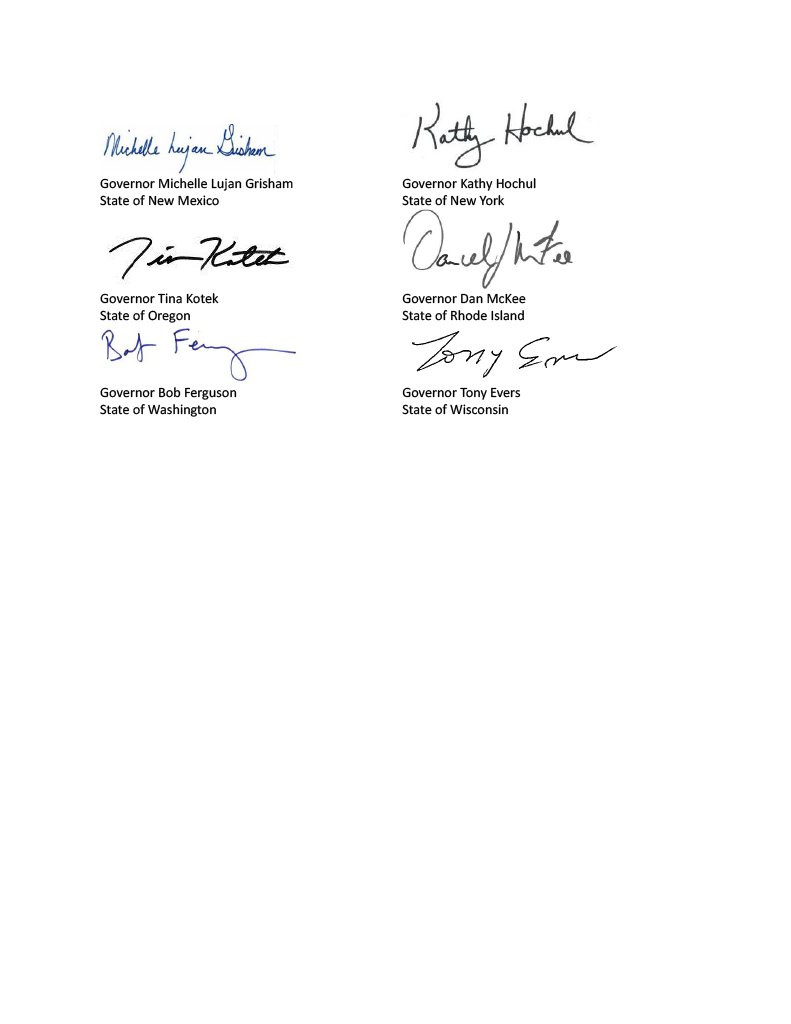 Michelle Lujan Grisham
Governor Michelle Lujan Grisham
State of New Mexico
Kathy Hochul
Governor Kathy Hochul
State of New York
Tina Kotek
Governor Tina Kotek
State of Oregon
Daniel J McKee
Governor Dan McKee
State of Rhode Island
Bob Ferguson
Governor Bob Ferguson
State of Washington
Tony Evers
Governor Tony Evers
State of Wisconsin